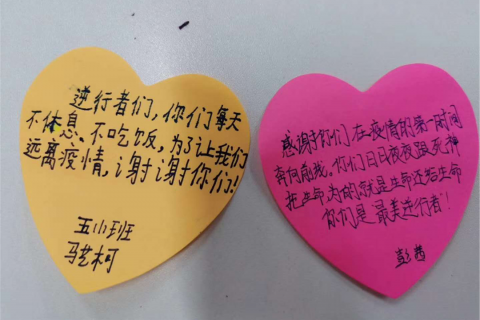 逆行者们,你们每天
不休息、不吃饭,为了让我们
远离疫情,谢谢你们!
五小班
马艺柯
感谢你们在疫情的第一时间
奔向前线。你们日日夜夜跟死神
把生命为的就是生命还给生命
你们是最美逆行者!
彭茜